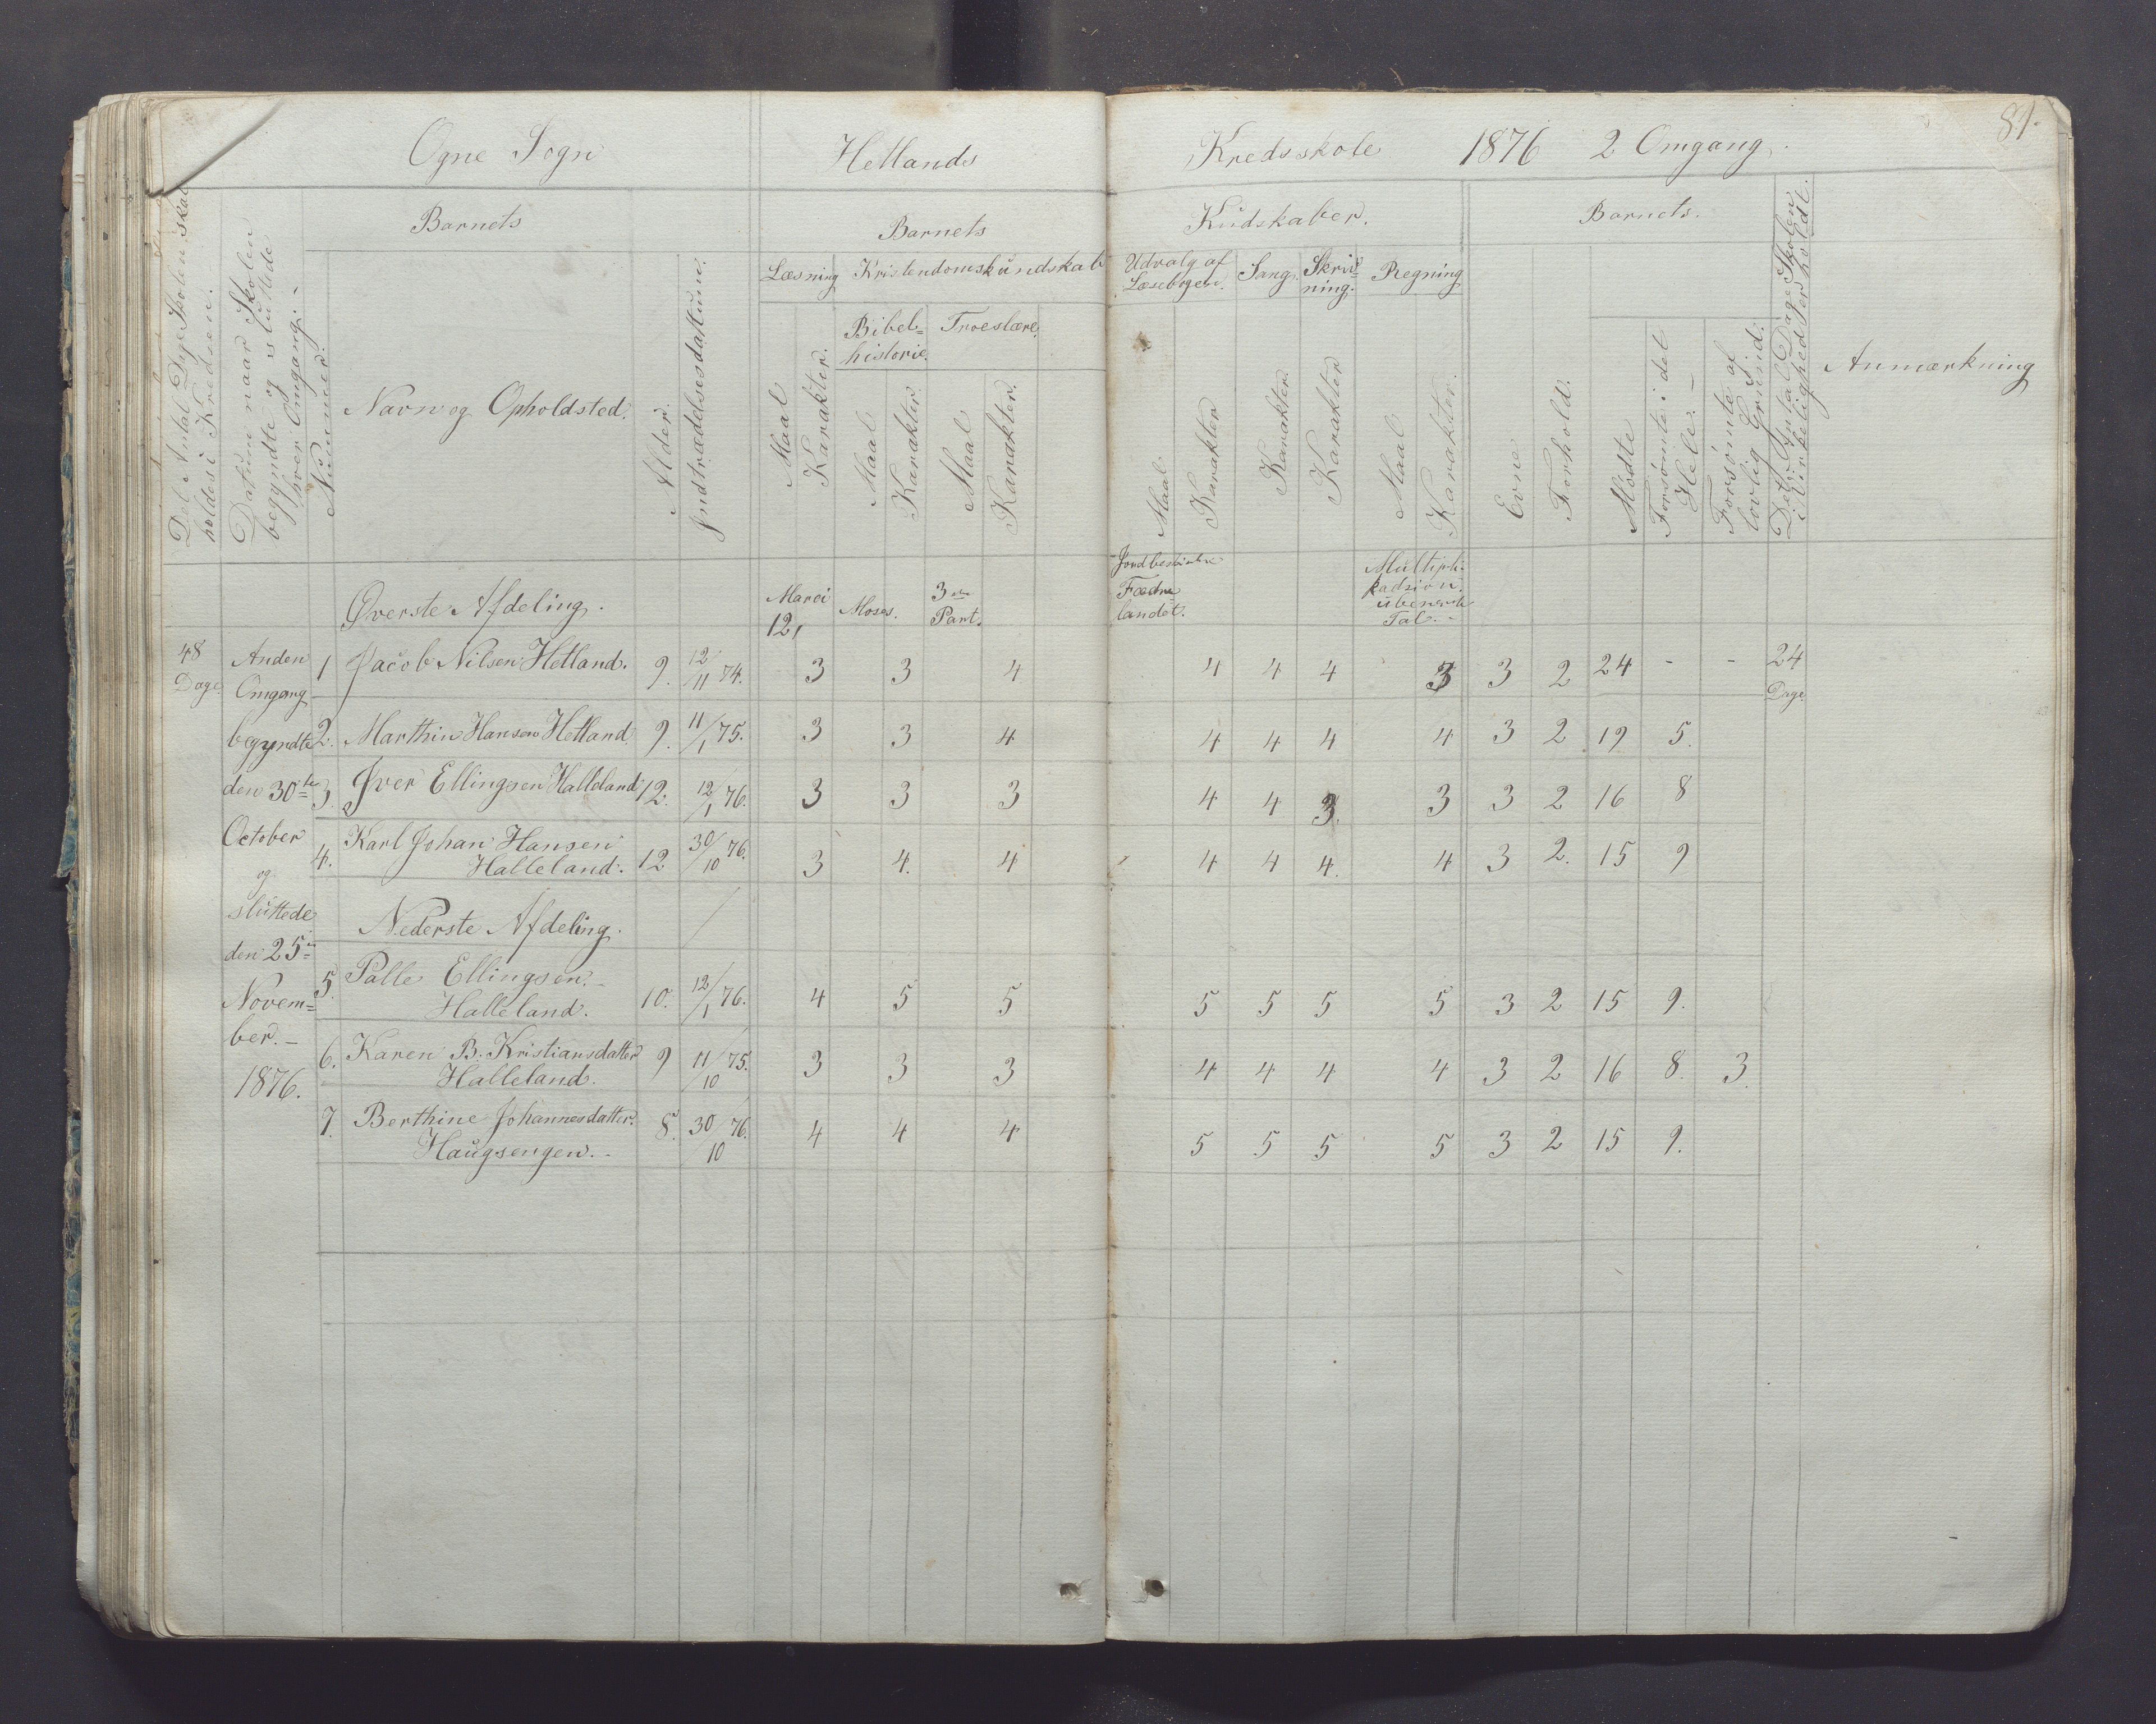 Ogne Sogn Hetlands Kredsskole 1876 2 Omgang. 81.
Det Antal Dage Skolen skal
holdes i Kredsen.
Datum naar Skolen
begyndte og sluttede
hver Omgang.-
Nummer.
Barnets
Navn og Opholdsted.
Alder.
Indtrædelsesdattum.
Barnets Kudskaber.
Læsning Kristendomskundskab
Maal
Karakter.
Bibel=
historie.
Maal
Karakter.
Troeslære.
Maal
Karakter.
Udvalg af
Læsebogen.
Maal.
Karakter
Sang.
Karakter.
Skriv=
ning.
Karakter
Regning
Maal
Karakter.
Barnets.
Evne
Forhold.
Mødte
Forsømte i det
Hele.-
Forsømte af
lovlig Grund.
Det Antal Dage Skolen
i Virkelighed er holdt.
Anmærkning
Øverste Afdeling. Marci 12, Moses. 3die Part. Fædre landet. Multipli- kadsion ubenævnte Tal.-
48 Dage
Anden
Omgang
begyndte
den 30te
October
og
sluttede
den 25de
Novem=
ber.-
1876.
1 Jacob Nilsen Hetland. 9. 12/11 74. 3 3 4 4 4 4 3 3 2 24 - - 24 Dage
2. Marthin Hansen Hetland 9. 11/1 75. 3 3 4 4 4 4 4 3 2 19 5.
3. Iver Ellingsen Halleland 12. 12/1 76. 3 3 3 4 4 3. 3 3 2 16 8
4. Karl Johan Hansen
Halleland. 12 30/10 76. 3 4. 4 4 4 4. 4 3 2. 15 9
Nederste Afdeling.
5. Palle Ellingsen.-
Halleland. 10. 12/1 76. 4 5 5 5 5 5 5 3 2 15 9.
6. Karen B. Kristiansdatter
Halleland. 9 11/10 75. 3 3 3 4 4 4 4 3 2 16 8. 3.
7. Berthine Johannesdatter.
Haugsengen.- 8. 30/10 76. 4 4 4 5 5 5 5 3 2 15 9.